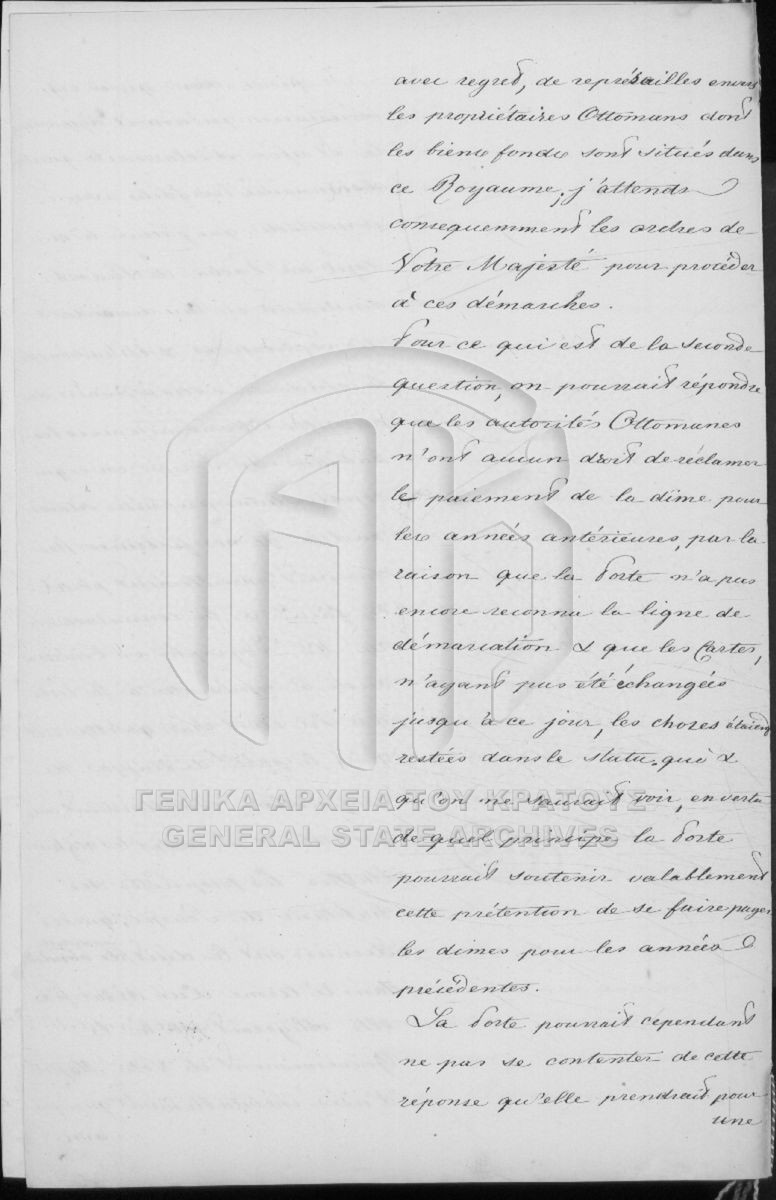 avec regret, de représailles envers
les propriétaires Ottomans dont
les biens fonds sont situés dans
ce Royaume; j'attends
consequemment les ordres de
Votre Majesté pour procéder
à ces démarches.
Pour ce qui est de la seconde
question, on pourrait répondre
que les autorités Ottomanes
n'ont aucun droit de réclamer
le paiement de la dîme pour
les années antérieures, par la
raison que la Porte n'a pas
encore reconnu la ligne de
démarcation & que les Cartes,
n'ayant pas été échangées
jusqu'à ce jour, les choses étaient
restées dans le statu-quo &
qu'on ne saurait voir, en vertu
de quel principe la Porte
pourrait soutenir valablement
cette prétention de se faire payer
les dimes pour les années
précédentes.
La Porte pourrait cependant
ne pas se contenter de cette
réponse qu'elle prendrait pour
une
ΓΕΝΙΚΑ ΑΡΧΕΙΑ ΤΟΥ ΚΡΑΤΟΥΣ
GENERAL STATE ARCHIVES